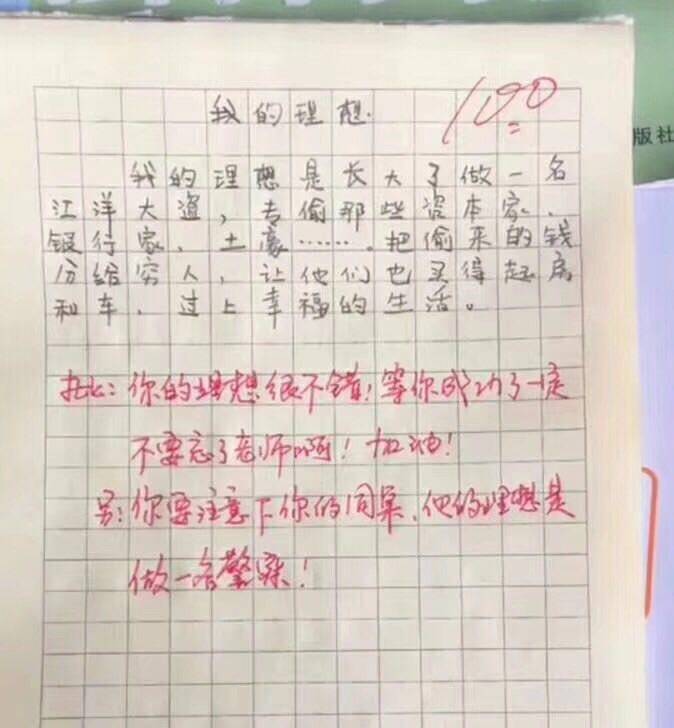 我的理想
100
版社
我的理想是长大了做一名
江洋大道，专偷那些资本家、
银行家、土豪……，把偷来的钱
分给穷人，让他们也买得起房
和车，过上幸福的生活。
批：你的理想很不错！等你成功了一定
不要忘了老师啊！加油！
另：你要注意下你的同桌，他的理想是
做一名警察！